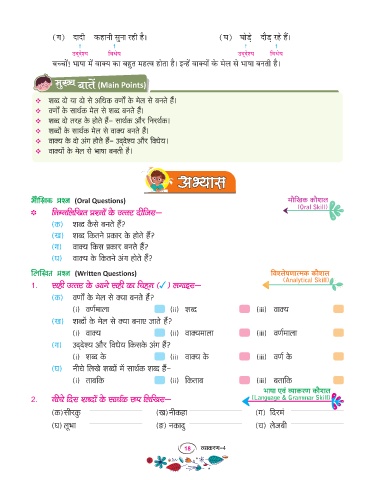 (ग) दादी कहानी सुना रही है। (घ) घोड़े दौड़ रहे हैं।
उद्देश्य विधेय उद्देश्य विधेय
बच्चों! भाषा में वाक्य का बहुत महत्व होता है। इन्हें वाक्यों के मेल से भाषा बनती है।
मुख्य बातें (Main Points)
❖ शब्द दो या दो से अधिक वर्णों के मेल से बनते हैं।
❖ वर्णों के सार्थक मेल से शब्द बनते हैं।
❖ शब्द दो तरह के होते हैं– सार्थक और निरर्थक।
❖ शब्दों के सार्थक मेल से वाक्य बनते हैं।
❖ वाक्य के दो अंग होते हैं– उद्देश्य और विधेय।
❖ वाक्यों के मेल से भाषा बनती है।
अभ्यास
मौखिक प्रश्न (Oral Questions) मौखिक कौशल
(Oral Skill)
निम्नलिखित प्रश्नों के उत्तर दीजिए–
(क) शब्द कैसे बनते हैं?
(ख) शब्द कितने प्रकार के होते हैं?
(ग) वाक्य किस प्रकार बनते हैं?
(घ) वाक्य के कितने अंग होते हैं?
लिखित प्रश्न (Written Questions) विश्लेषणात्मक कौशल
(Analytical Skill)
1. सही उत्तर के आगे सही का चिह्न (✓) लगाइए–
(क) वर्णों के मेल से क्या बनते हैं?
(i) वर्णमाला (ii) शब्द (iii) वाक्य
(ख) शब्दों के मेल से क्या बनाए जाते हैं?
(i) वाक्य (ii) वाक्यमाला (iii) वर्णमाला
(ग) उद्देश्य और विधेय किसके अंग हैं?
(i) शब्द के (ii) वाक्य के (iii) वर्ण के
(घ) नीचे लिखे शब्दों में सार्थक शब्द हैं–
(i) ताबकि (ii) किताब (iii) बताकि
भाषा एवं व्याकरण कौशल
2. नीचे दिए शब्दों के सार्थक रूप लिखिए– (Language & Grammar Skill)
(क) सीरकु (ख) नीकहा (ग) दिरमं
(घ) लूभा (ङ) नकादु (च) लेजबी
18 व्याकरण–4